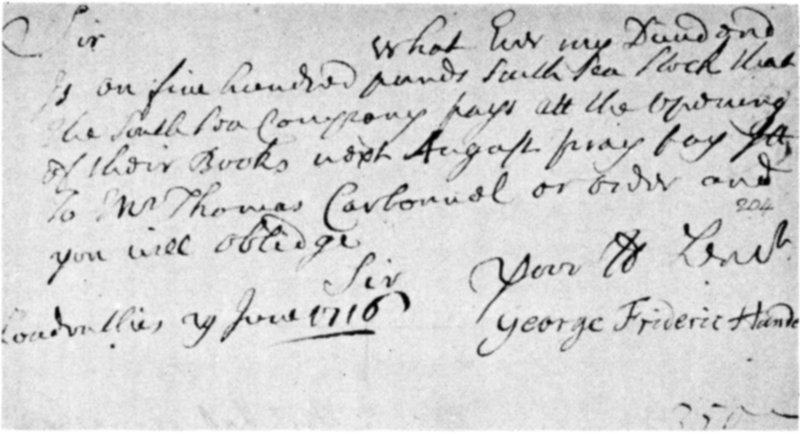 Sir
What Ever my Dividend
Is on five hundred pounds South Sea Stock that
The South Sea Company pays att the opening
of their Books next August pray pay Itt
To Mr Thomas Carbonnel or order and
204
you will oblidge
Sir
Your H Serv
London this 29 June 1716
George Frideric Hande